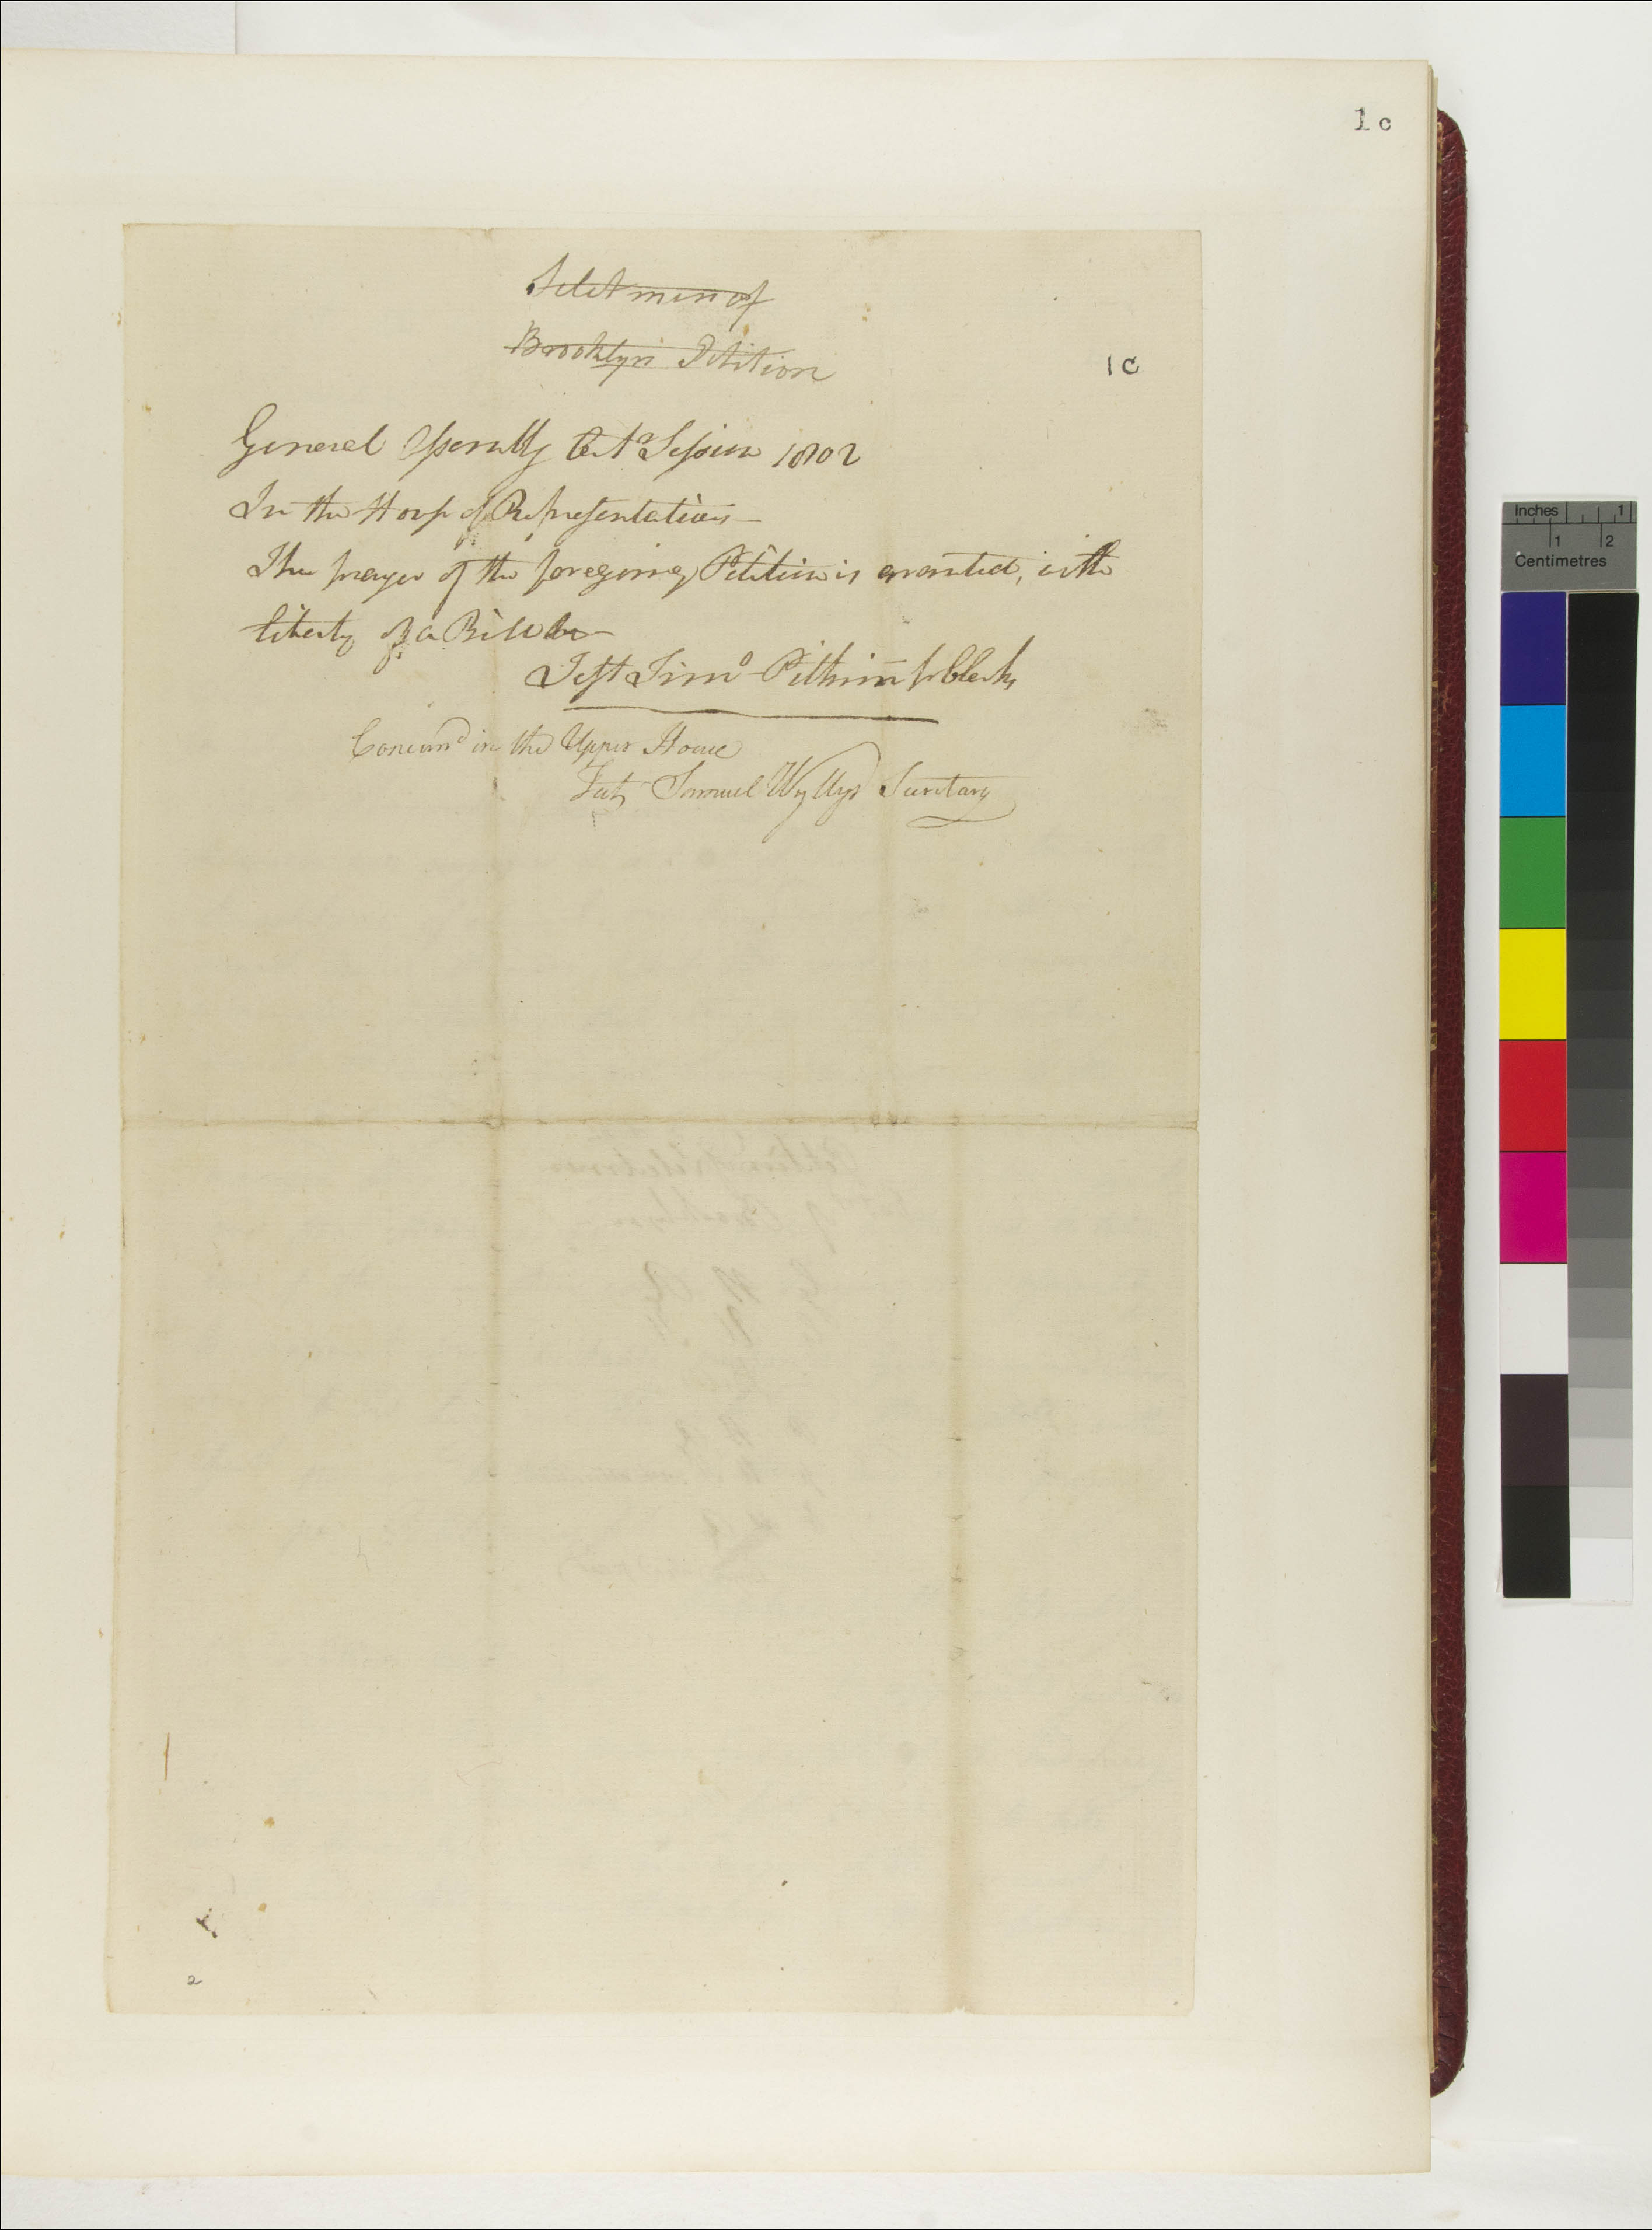 1c
Selectmen of
Brooklyn Petition
1C
General Assembly Octr Session 1802
In the House of Representatives
The prayer of the foregoing Petition is granted, with
liberty of a Bill &c
Test Timo Pitkin Jr Clerk,
Concurrd in the Upper House
Test Samuel Wyllys Secretary
2
Inches 1
1 2
Centimetres